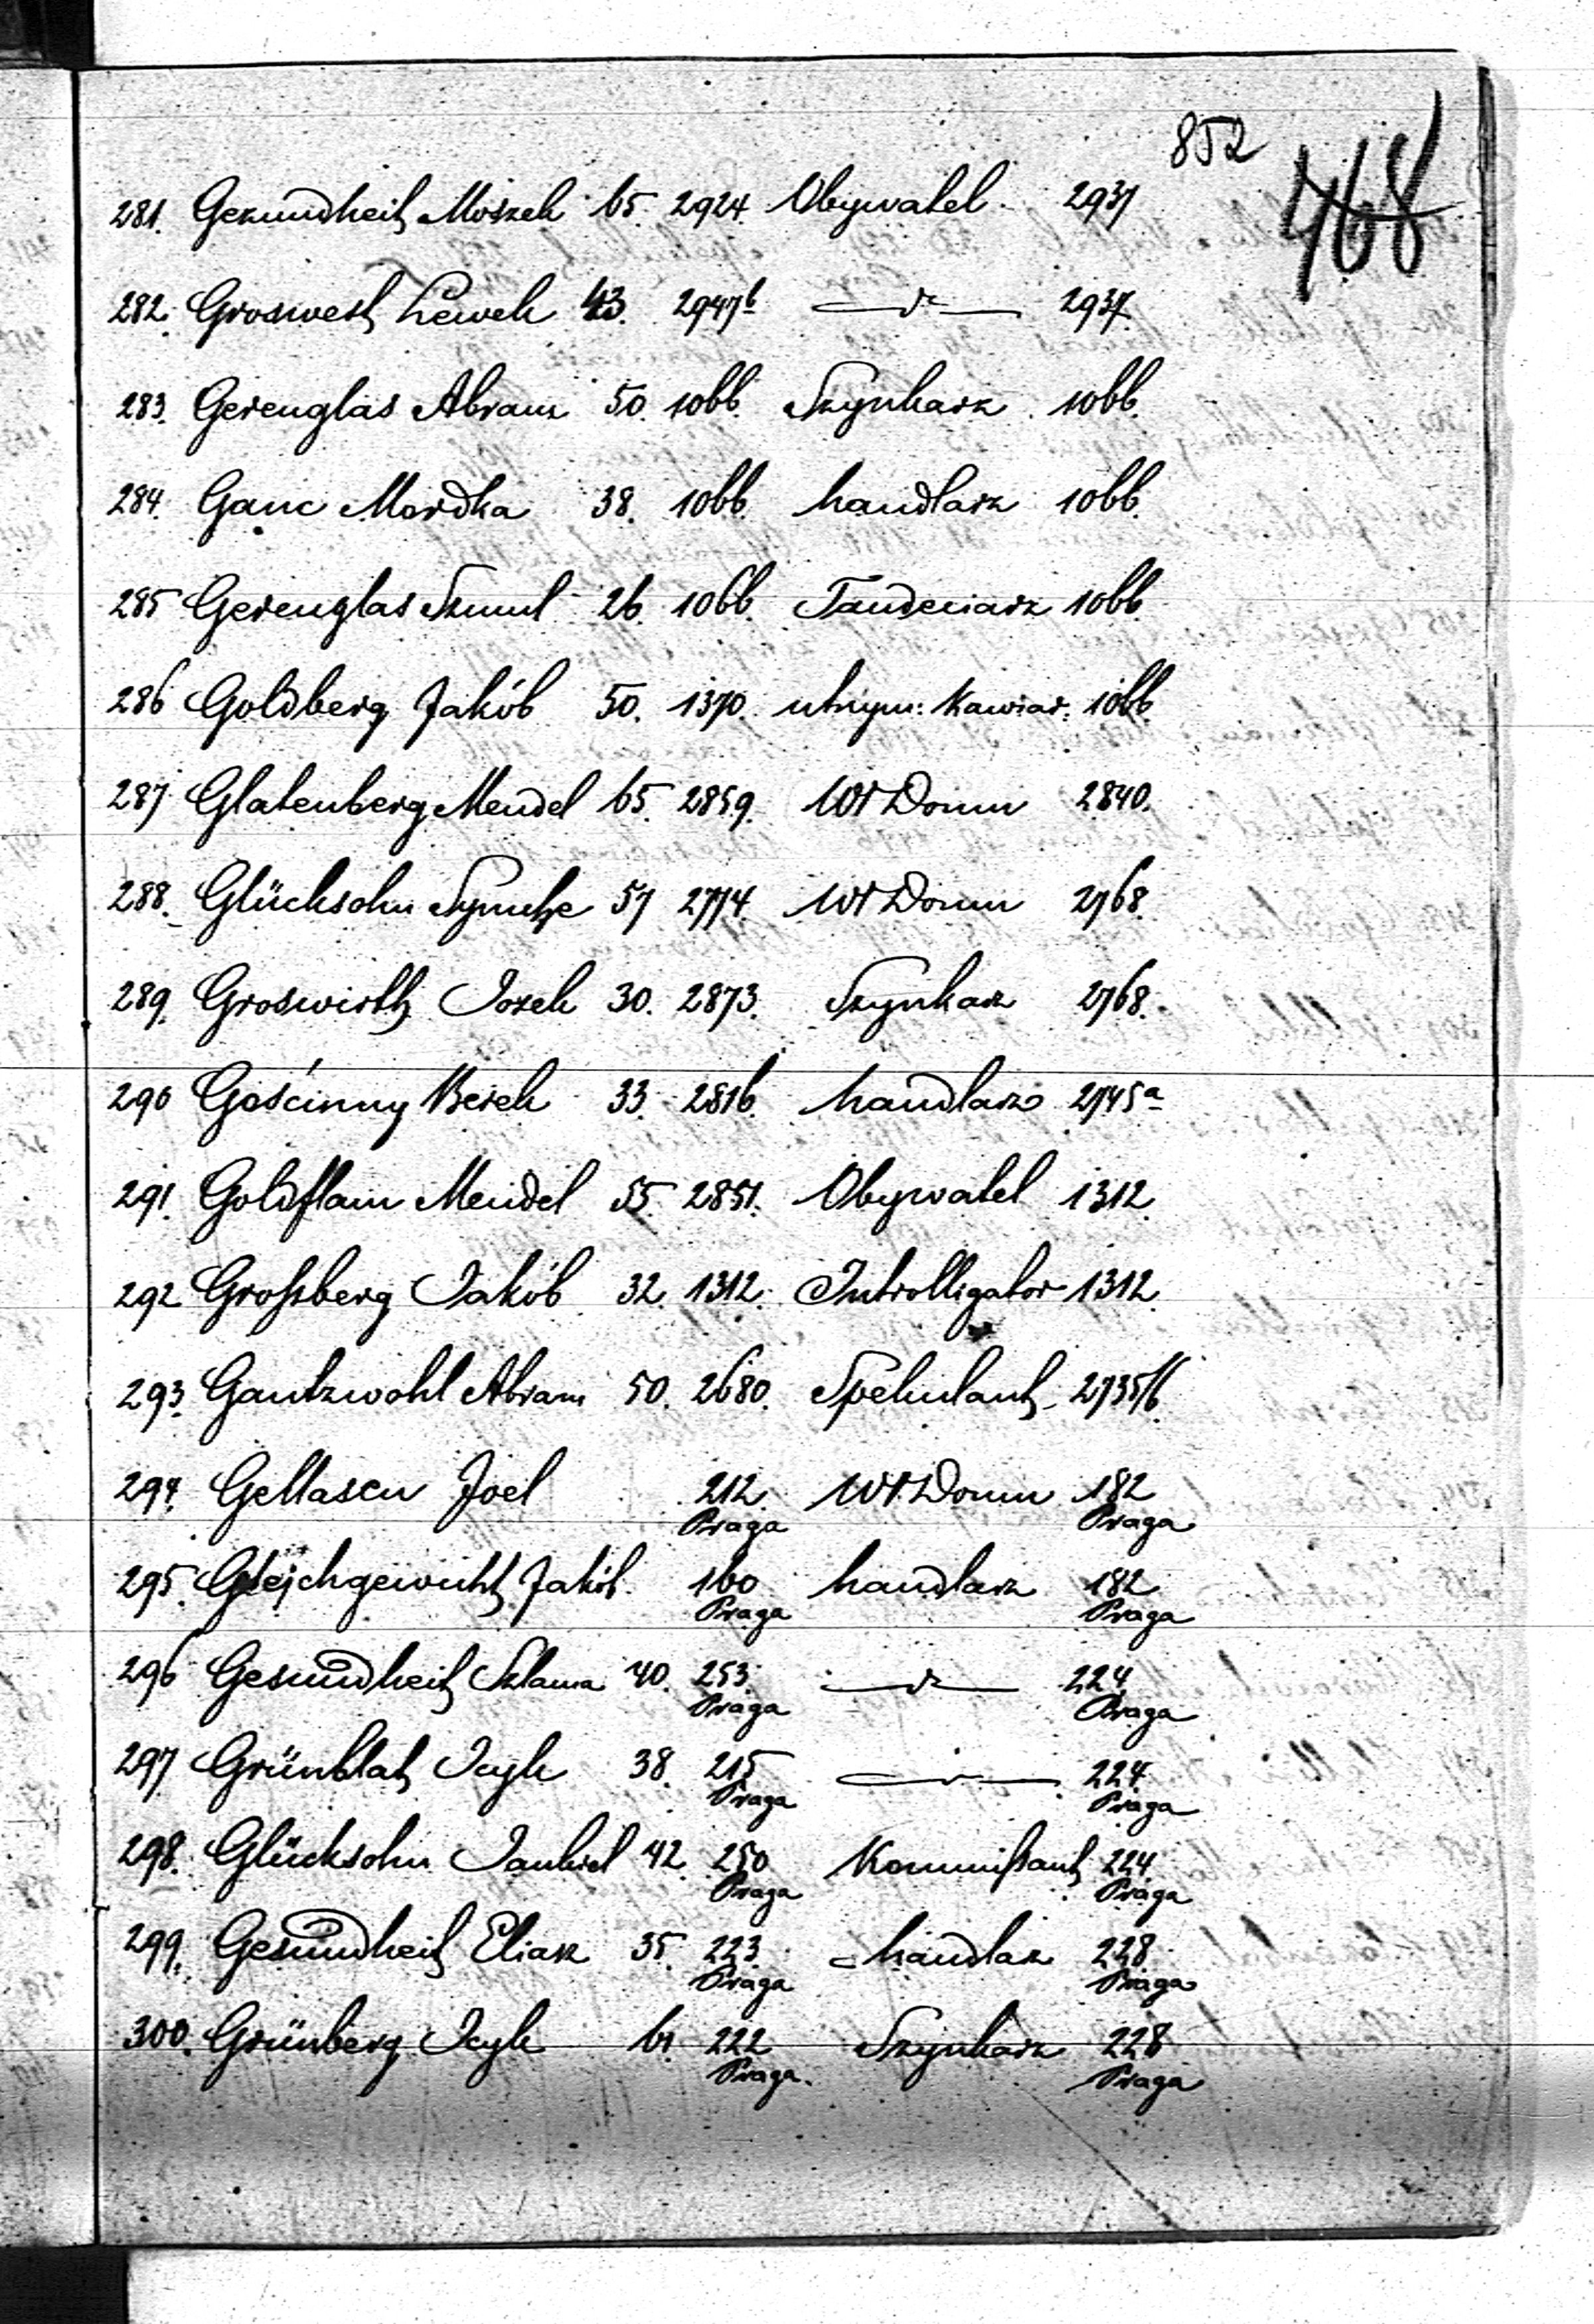 852
468
281. Gesundheit Moszek 65. 2924 Obywatel 2937
282. Groswest Lewek 43. 2947b — d° — 2937.
283. Gerenglas Abram 50. 1066. Szynkarz 1066.
284. Ganc Mordka 38. 1066. handlarz 1066.
285 Gerenglas Szmul 26. 1066. Tandeciarz 1066.
286 Goldberg Jakób 50. 1370. utrzym: Kawiar: 1066.
287 Glatenberg Mendel 65. 2859. Wł Domu 2840.
288. Glücksohn Symche 57 2774. Wł Domu 2768.
289. Groswirth Josek 30. 2873. Szynkarz 2768.
290 Gościnny Berek 33. 2816. handlarz 2745a
291. Goldflam Mendel 55. 2851. Obywatel 1312.
292 Großberg Jakób 32. 1312. Introlligator 1312.
293. Gantzwohl Abram 50. 2680. Spekulant 2735/6.
294. Gellasen Joel 212. Wł. Domu 182
Praga Praga
295. Gleichgewicht Jakób. 160 handlarz 182
Praga Praga
296 Gesundheit Szlama 40. 253. — d° — 224
Praga Praga
297 Grünblat Icyk 38. 215 — d° — 224
Praga Praga
298. Glücksohn Jankiel 42. 250 Kommißant 224
Praga Praga
299. Gesundheit Eliasz 35. 223. handlarz 228
Praga Praga
300. Grünberg Icyk 61. 222 Szynkarz 228
Praga. Praga